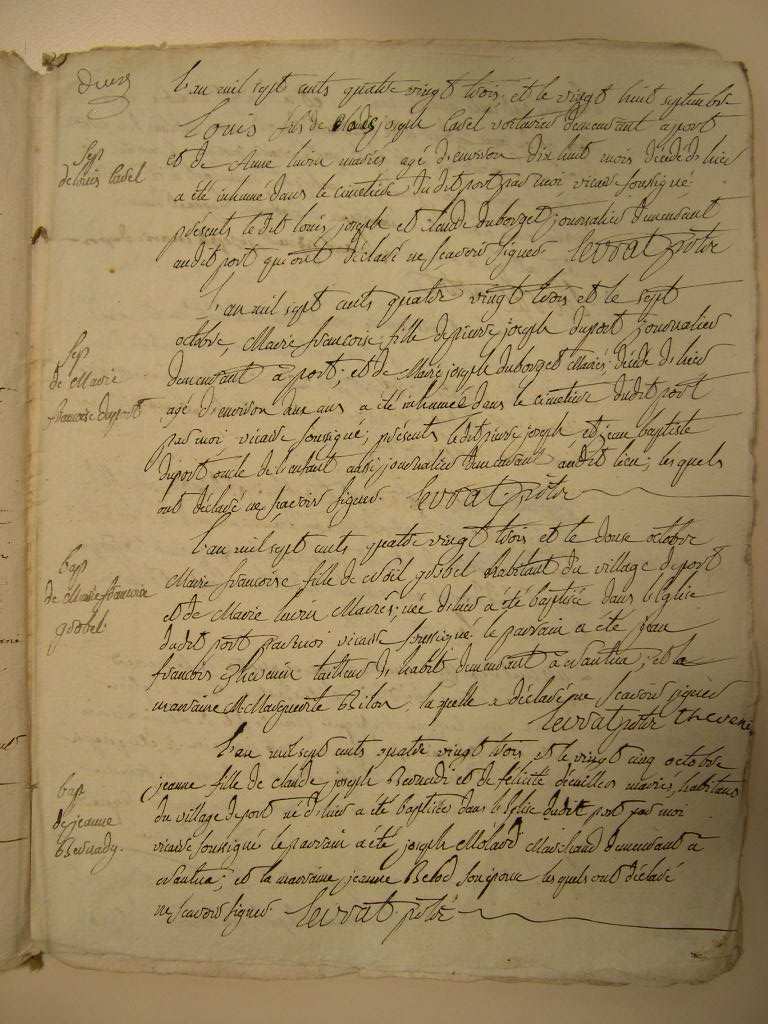 L'an mil sept cents quatre vingt trois et le vingt huit septembre
Louis fils de joseph Cadel voiturier demeurant a port
Sep
de Louis Cadel
et de Anne mariés agé d'environ dix huit mois décédé d'hier
a été inhumé dans le cimetiere du dit port par moi vicaire soussigné
présents le dit louis joseph et claude duborget journalier demeurant
audit port qui ont déclaré ne scavoir signer. levrat ptre
L'an mil sept cents quatre vingt trois et le sept
octobre, Marie francoise fille de pierre joseph duport journalier
Sep
de Marie
francoise duport
demeurant a port; et de Marie joseph duborget mariés, décédé d'hier
agé d'environ deux ans a été inhumée dans le cimetiere dudit port
par moi vicaire soussigné; présents le dit pierre joseph, et jean baptiste
duport oncle de l'enfant aussi journalier demeurant audit lieu, lesquels
ont déclaré ne scavoir signer. levrat ptre
L'an mil sept cents quatre vingt trois et le douse octobre
bap
de Marie francoise
gobel
Marie francoise fille de gobel habitant du village de port
et de Marie mariés, née d'hier a été baptisée dans l'Eglise
dudit port par moi vicaire soussigné le parrain a été jean
francois thevenin tailleur d'habit demeurant a nantua; et la
marraine Marguerite Bilon, la quelle a déclaré ne scavoir signer
levrat ptre thevenin
L'an mil sept cents quatre vingt trois et le vingt cinq octobre
bap
de jeanne
Bernady.
jeanne fille de claude joseph Bernadi et de felicité mariés, habitans
du village de port né d'hier a été baptisée dans l'Eglise dudit port par moi
vicaire soussigné le parrain a été joseph Molard Marchand demeurant a
nantua; et la marraine jeanne Belod son épouse lesquels ont déclaré
ne scavoir signer. levrat ptre